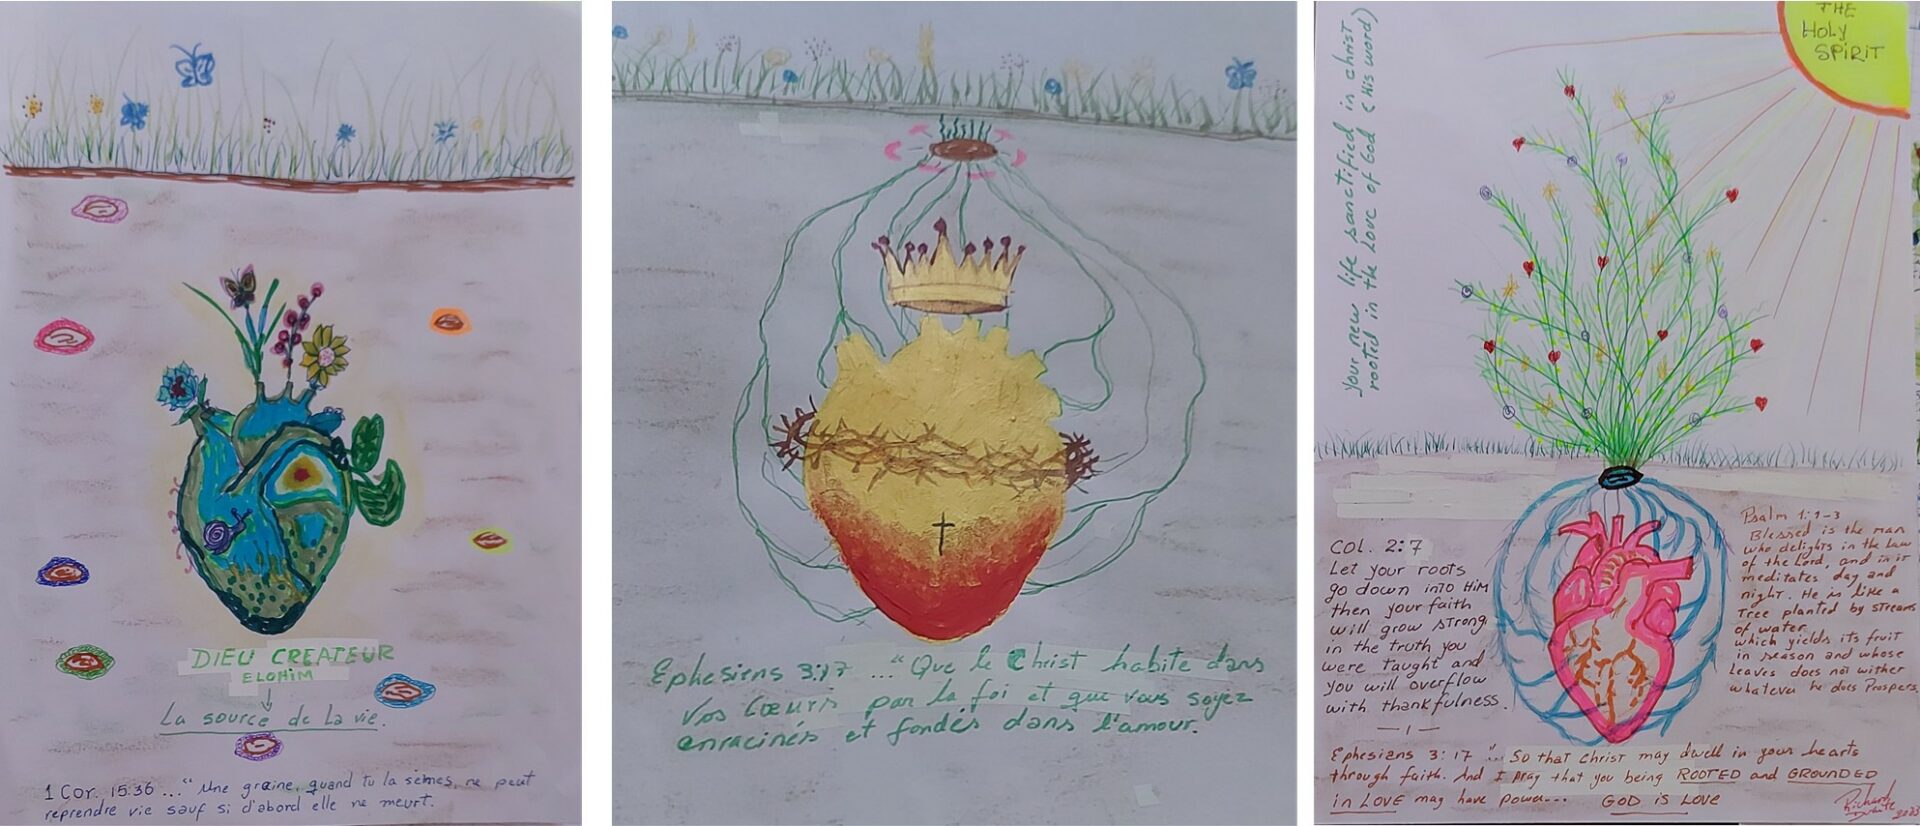 DIEU CREATEUR
ELOHIM
La source de La vie.
1 Cor. 15:36 ... "Une graine, quand tu la sèmes, ne peut
reprendre vie sauf si d'abord elle ne meurt.
Ephesiens 3:17 ... "Que le Christ habite dans
Vos Cœurs par la foi et que vous soyez
enracinés et fondés dans l'amour.
THE
HOLY
SPIRIT
your new life sanctified in christ
rooted in the Love of God (His word)
COL. 2:7
Let your roots
go down into HiM
then your faith
will grow strong
in the truth you
were taught and
you will overflow
with thankfulness.
Psalm 1:1-3
Blessed is the man
who delights in the Law
of the Lord, and in it
meditates day and
night. He is like a
Tree planted by streams
of water
which yields its fruit
in season and whose
Leaves does not wither
whatever he does Prospers.
Ephesians 3:17 "... So that christ may dwell in your hearts
through faith. And I pray that you being ROOTED and GROUNDED
in LOVE may have power...
GOD is LOVE
Richard